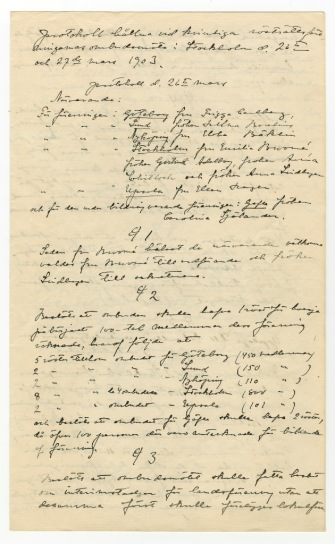 Protokoll hållna vid kvinnliga rösträttsför
eningarnas ombudsmöte i Stockholm d. 26te
och 27de mars 1903.
Protokoll d. 26te mars
Närvarande:
För föreningen i Göteborg fru Frigga Carlberg,
" " " Lund fröken
" " " Nyköping fru Ebba
" " " Stockholm fru Emilia Broomé
fröken Gertrud Adelborg, fröken Anna
Whitlock och fröken Anna Lindhagen
" " " Upsala fru Ellen
och för den under bildning varande föreningen i Gefle fröken
Carolina Själander.
§ 1
Sedan fru Broomé hälsat de närvarande välkomna
valdes fru Broomé till ordförande och fröken
Lindhagen till sekreterare.
§ 2
Beslöts att ombuden skulle hafva 1 röst för hvarje
påbörjadt 100-tal medlemmar deras förening
räknade, hvaraf följde att
5 röster ombudet för Göteborg (450 medlemmar)
2 " " " Lund (150 " )
2 " " " Nyköping (110 " )
8 " de 4 ombuden " Stockholm (800 " )
2 " ombudet " Upsala (101 " )
och beslöts att ombudet för Gefle skulle hafva 2 röster,
då öfver 100 personer der voro antecknade för bildande
af förening.
§ 3
Beslöts att ombudsmötet skulle fatta beslut
om interimsstadgar för landsföreningen utan att
desamma först skulle föreläggas lokalfören